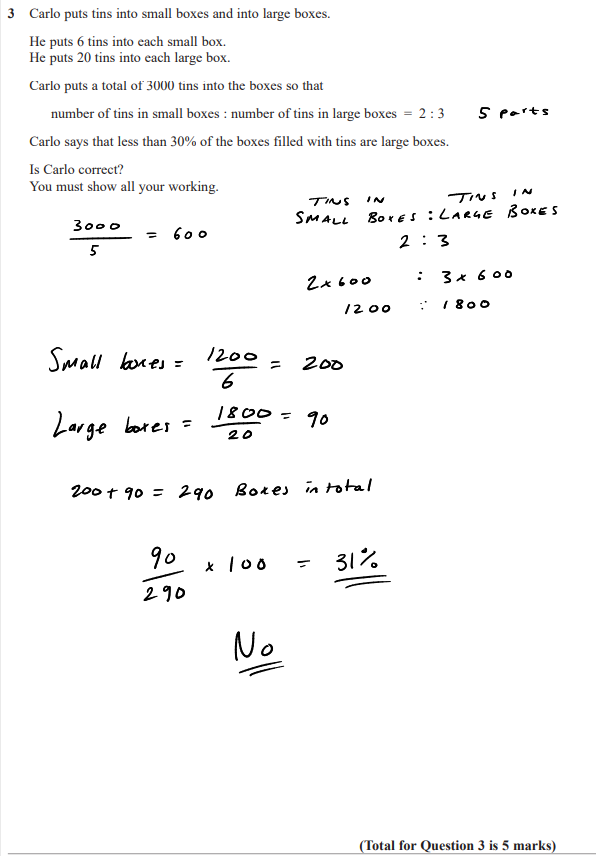 3 Carlo puts tins into small boxes and into large boxes.
He puts 6 tins into each small box.
He puts 20 tins into each large box.
Carlo puts a total of 3000 tins into the boxes so that
number of tins in small boxes : number of tins in large boxes = 2 : 3 5 parts
Carlo says that less than 30% of the boxes filled with tins are large boxes.
Is Carlo correct?
You must show all your working.
TINS IN TINS IN
SMALL BOXES : LARGE BOXES
3000/5 = 600
2 : 3
2 × 600 : 3 × 600
1200 : 1800
Small boxes = 1200/6 = 200
Large boxes = 1800/20 = 90
200 + 90 = 290 Boxes in total
90/290 × 100 = 31%
No
(Total for Question 3 is 5 marks)